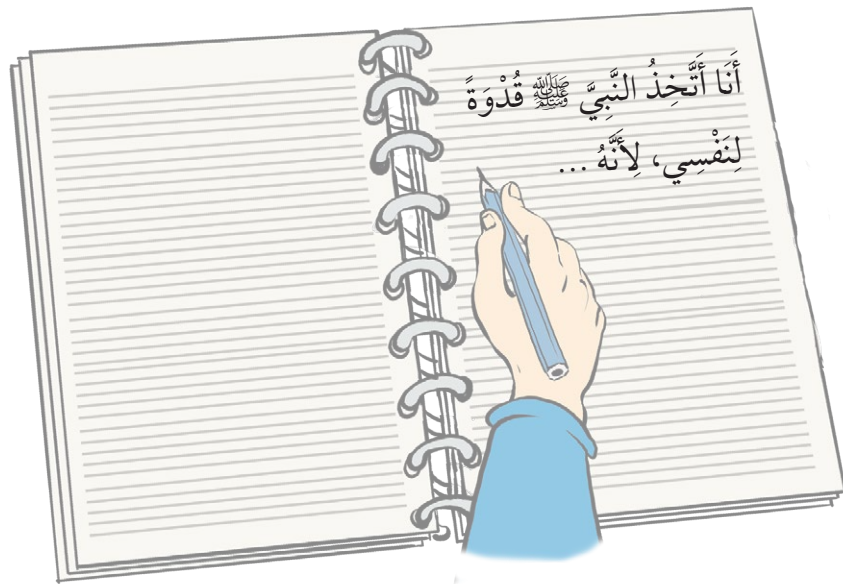 أَنَا أَتَّخِذُ النَّبِيَّ ﷺ قُدْوَةً
لِنَفْسِي، لِأَنَّهُ ...